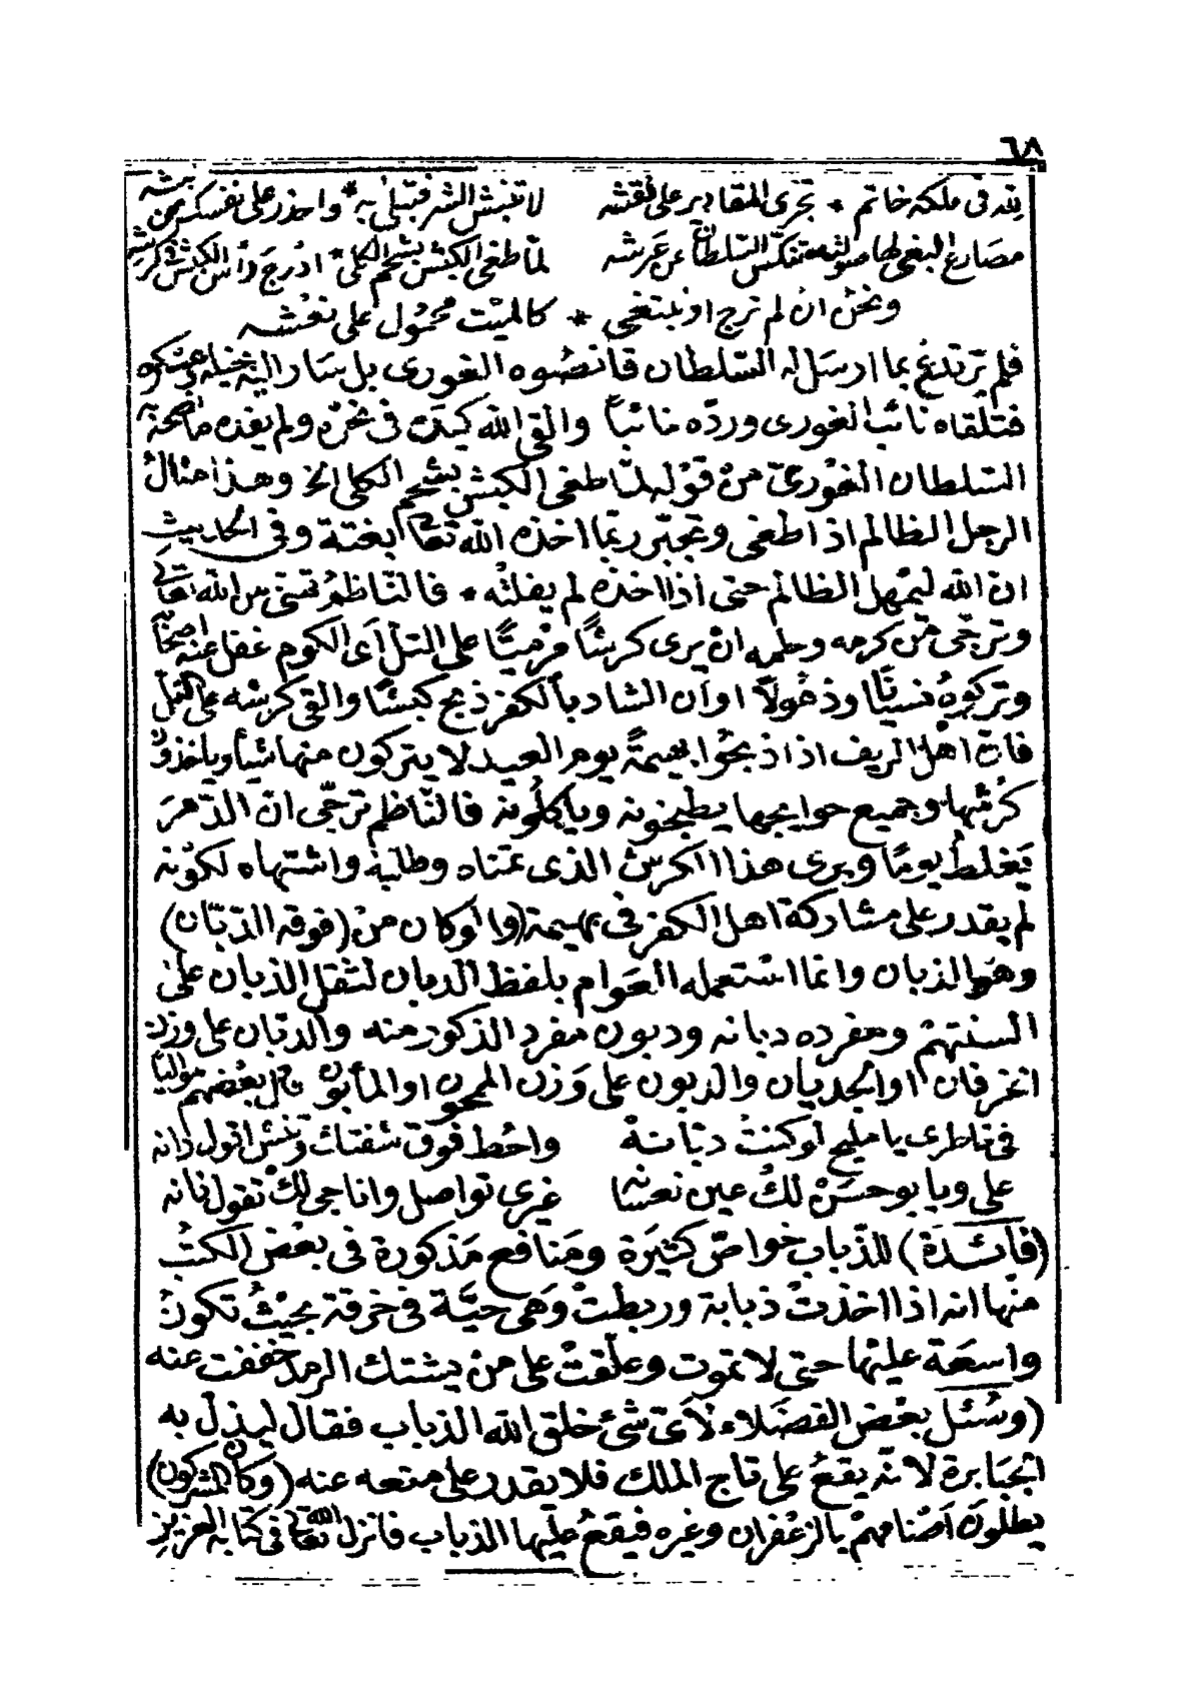 ٦٨
لله فى ملكه خاتم * تجرى المقادير على نقشه لا تنبش الشر فتبلى به * واحذر على نفسك من نبشه
مصارع البغى لها صولة * تنكس السلطان عن عرشه لما طغى الكبش بشحم الكلى * ادرج رأس الكبش فى كرشه
ونحن ان لم نرج او نبتغى * كالميت محمول على نعشه
فلم يرتدع بما ارسل له السلطان قانصوه الغورى بل سار اليه بخيله وعسكره
فتلقاه نائب الغورى وردّه خائباً والقى الله كيده فى نحره ولم يفده ما نصحه به
السلطان الغورى من قوله لمّا طغى الكبش بشحم الكلى الخ وهذا مثال
الرجل الظالم اذا طغى وتجبّر ربّما اخذه الله تعالى بغتة وفى الحديث
انّ الله ليمهل الظالم حتى اذا اخذه لم يفلته * فالنّاظم تمنى من الله تعالى
وترجّى من كرمه وحلمه ان يرى كرشًا مرميّا على التلّ اى الكوم غفل عنه اصحابه
وتركوه نسيّا وذهولاً او ان الشاد بالكفر ذبح كبشًا والقى كرشه على التلّ
فانّ اهل الريف اذا ذبحوا بهيمةً يوم العيد لا يتركون منها شيأ ويأخذون
كرشها وجميع حوايجها يطبخونه ويأكلونه فالنّاظم ترجّى ان الدّهر
يغلط يومًا ويرى هذا الكرش الذى تمناه وطلبه واشتهاه لكونه
لم يقدر على مشاركة اهل الكفر فى بهيمة (ولو كان من (فوقه الدّبّان)
وهو الذبان وانما استعمله العوام بلفظ الدبان لثقل الذبان على
السنتهم ومفرده دبانه ودبون مفرد الذكور منه والدبّان على وزن
الخرفان او الجديان والدبون على وزن المجحون او المأبون قال بعضهم مواليّا
فى خاطرى يا مليح لو كنت دبّانة واحُط فوق شفتاك ونش اقول دانه
على ويا بو حسن لك عين نعسانه غيرى تواصل وانا جى لك تقول نانه
(فائدة) للذّباب خواصّ كثيرة ومنافع مذكورة فى بعض الكتب
منها انه اذا اخذت ذبابة وربطت وهى حيّة فى خرقة بحيث تكون
واسعة عليها حتى لا تموت وعلّقت على من يشتك الرمد خففت عنه
(وسُئل بعض الفضلاء لأىّ شئ خلق الله الذباب فقال ليذلّ به
الجبابرة لانّه يقع على تاج الملك فلا يقدر على منعه عنه (وكان المشركون)
يطلون اصنامهم بالزعفران وغيره فيقع عليها الذباب فانزل الله تعالى فى كتابه العزيز